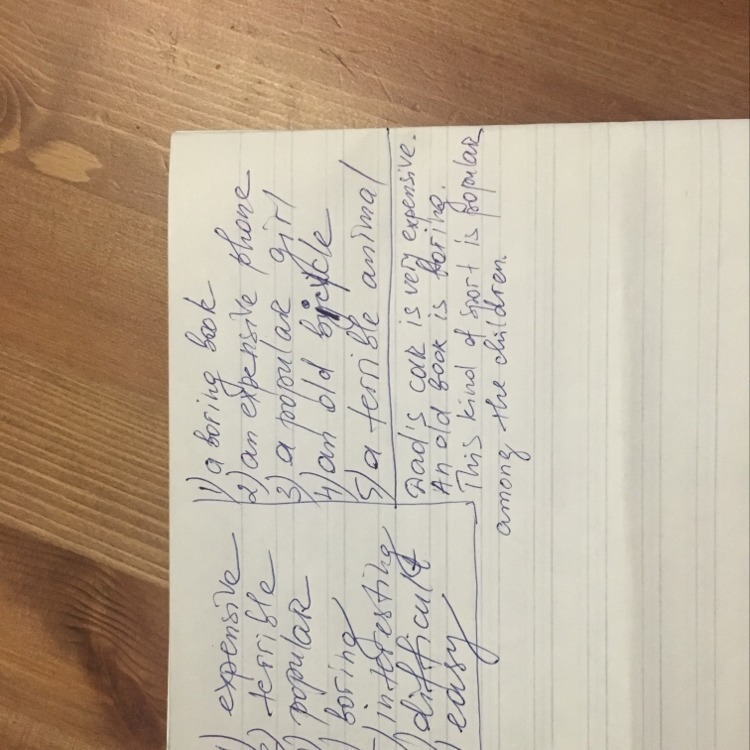 1) a boring book
2) an expensive phone
3) a popular girl
4) an old bicycle
5) a terrible animal
Dad's car is very expensive.
An old book is boring.
This kind of sport is popular
among the children.
1) expensive
2) terrible
3) popular
) boring
) interesting
) difficult
) easy